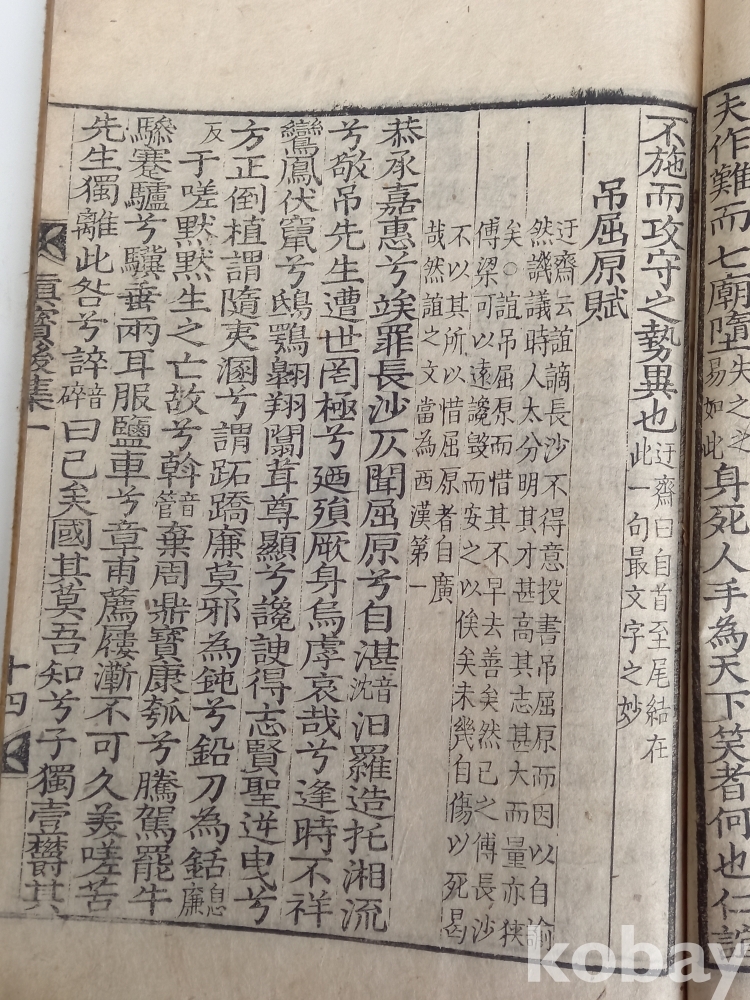 夫作難而七廟墮失之之易如此身死人手為天下笑者何也仁誼
不施而攻守之勢異也迂齋曰自首至尾結在此一句最文字之妙
吊屈原賦
迂齋云誼謫長沙不得意投書吊屈原而因以自諭
然譏議時人太分明其才甚高其志甚大而量亦狹
矣○誼吊屈原而惜其不早去善矣然已之傅長沙
傅梁可以遠讒毀而安之以俟矣未幾自傷以死曷
不以其所以惜屈原者自廣
哉然誼之文當為西漢第一
恭承嘉惠兮竢罪長沙仄聞屈原兮自湛音沈汨羅造托湘流
兮敬吊先生遭世罔極兮廼殞厥身烏虖哀哉兮逢時不祥
鸞鳳伏竄兮鴟鴞翱翔闒茸尊顯兮讒諛得志賢聖逆曳兮
方正倒植謂隨夷溷兮謂跖蹻廉莫邪為鈍兮鉛刀為銛息廉
反于嗟默默生之亡故兮斡音管棄周鼎寶康瓠兮騰駕罷牛
驂蹇驢兮驥垂兩耳服鹽車兮章甫薦屨漸不可久羙嗟苦
先生獨離此咎兮誶音碎曰已矣國其莫吾知兮子獨壹鬱其
眞寶後集一 十四
kobay